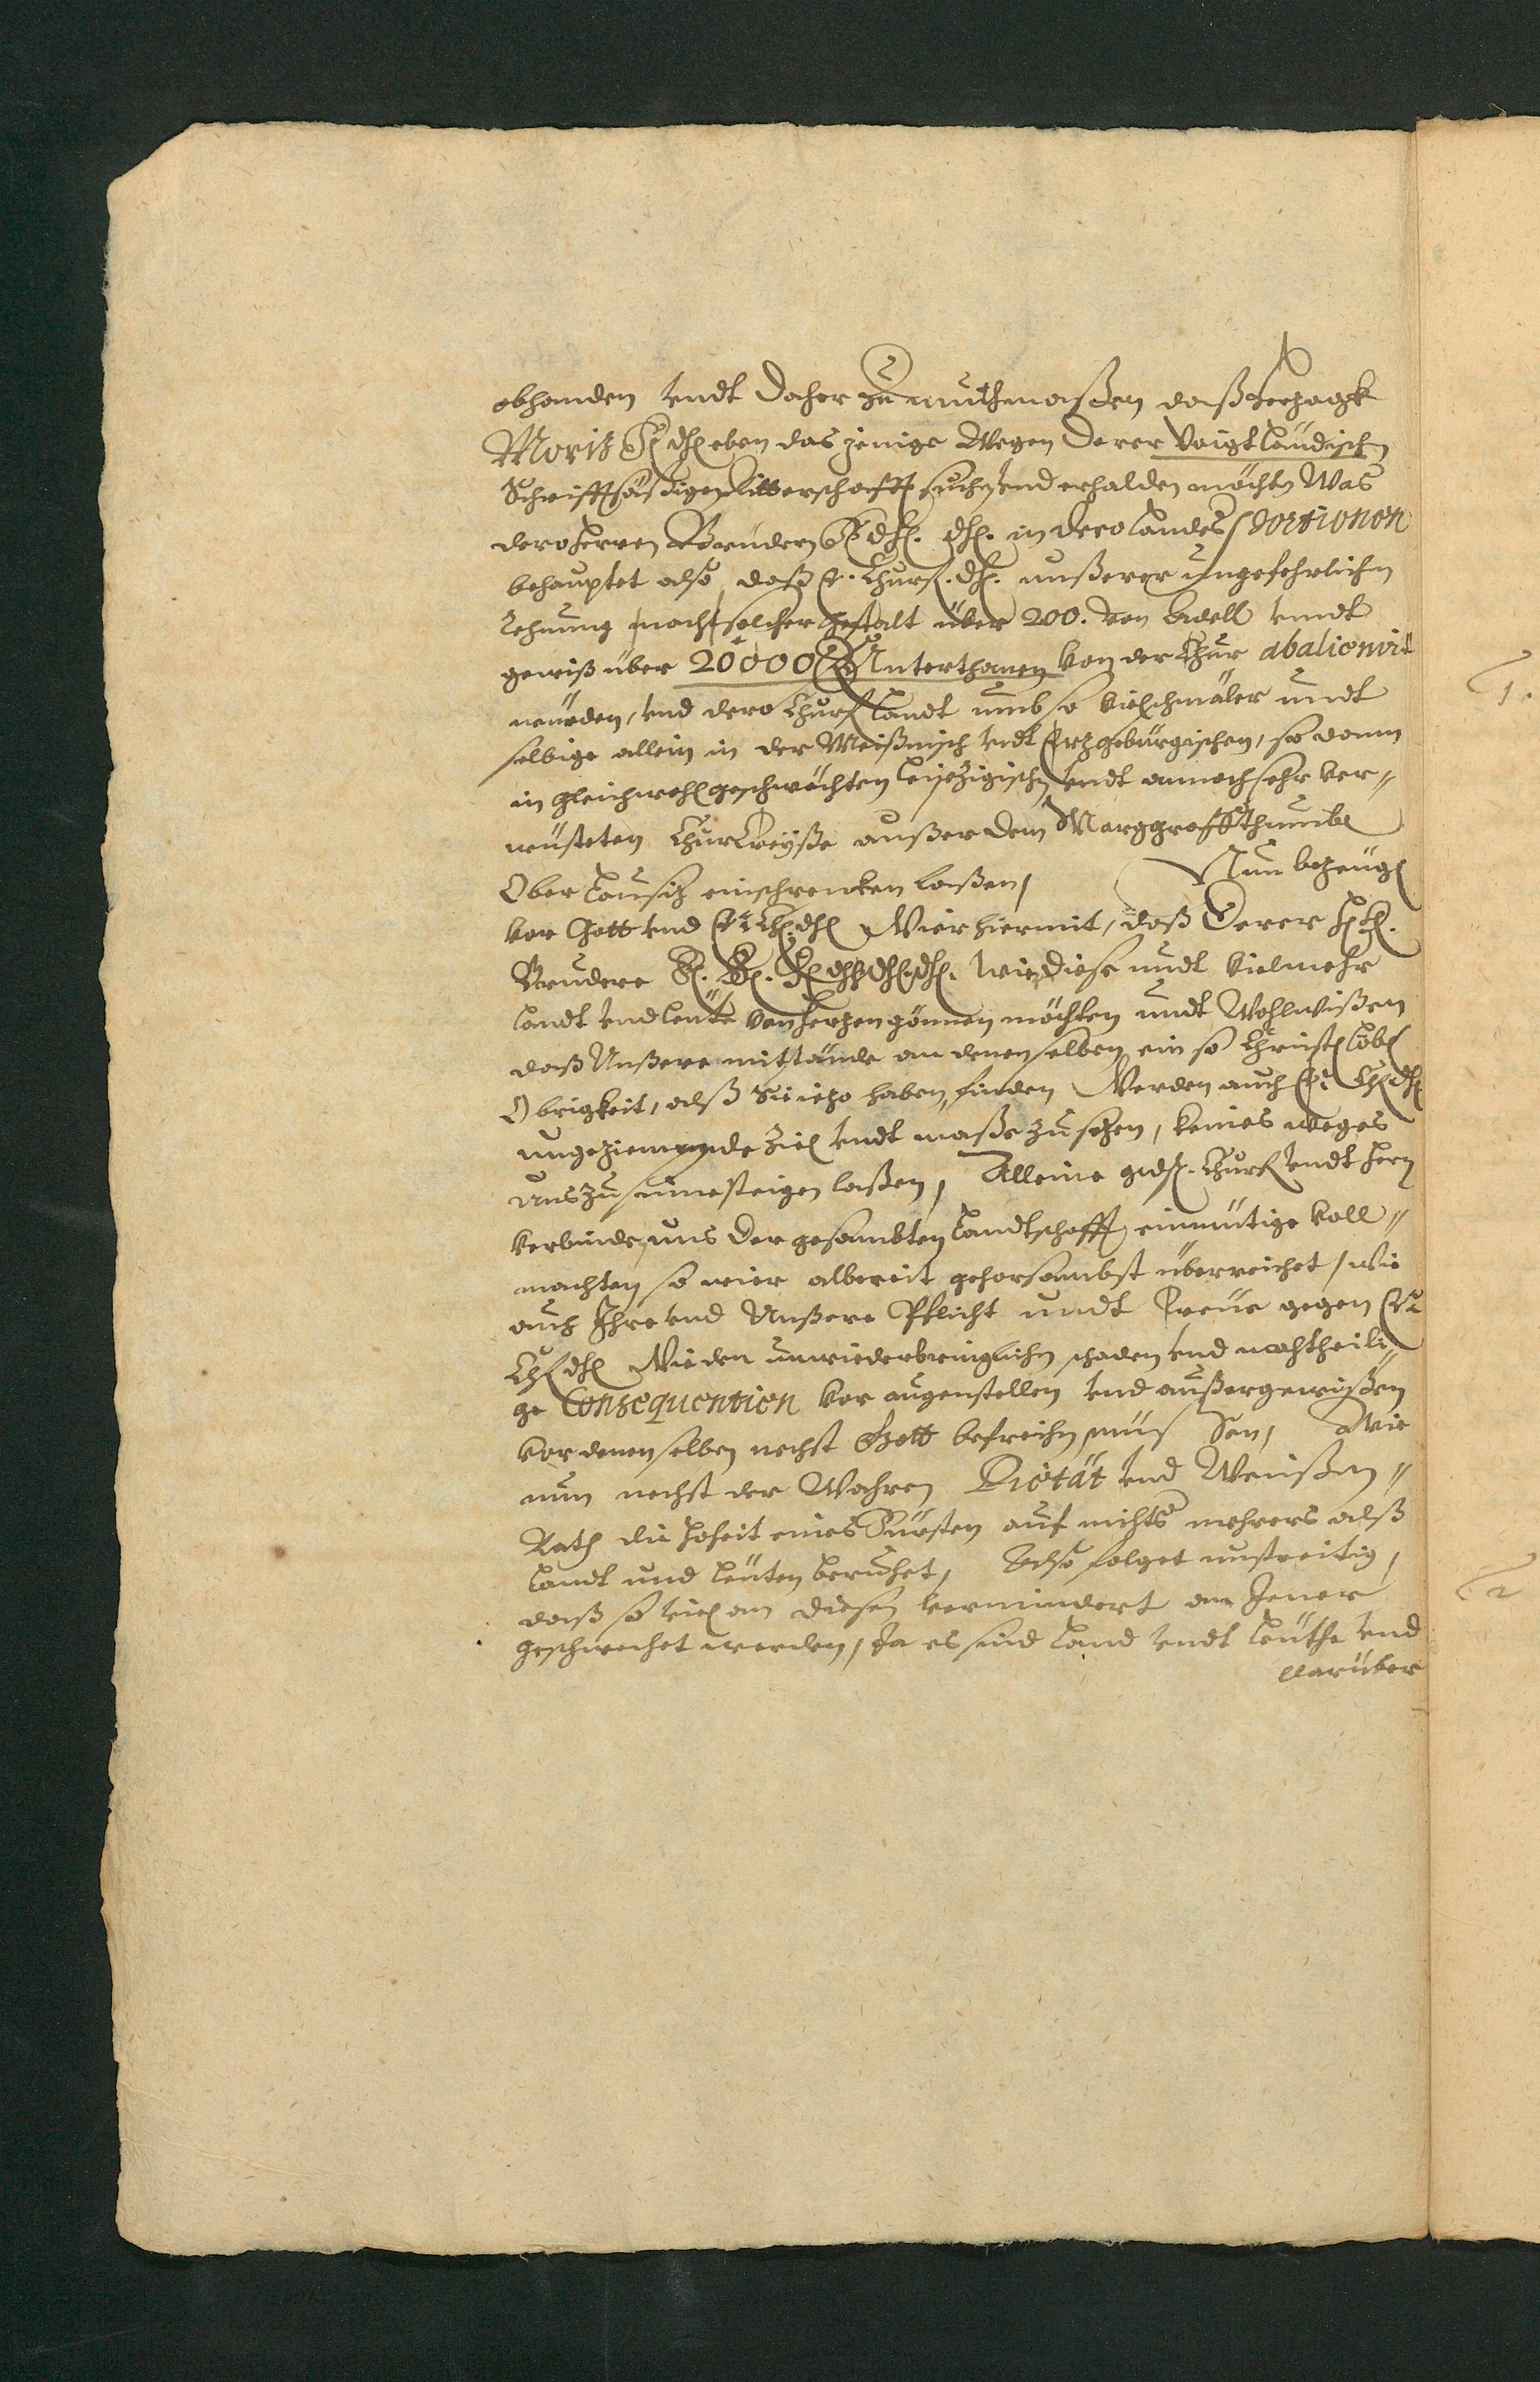 obhanden undt daher zu muthmaßen daß Herzogk
Moritz Fl dhl eben das jenige Wegen derer Voigtländischen
Schrifftsäßigen Ritterschafft suchen und erhalden möchten Was
dero Herren Brüdern Fl dhl. dhl. in dero Landes Portionen
behauptet also, daß E. Churf. dhl. unßerer ungefehrlichen
Rechnung nach solcher gestalt über 200. von Adell undt
gewiß über 20000 Unterthanen von der Chur abalieniret
würden, und dero Churf Landt umb so viel schmäler undt
selbige allein in der Meißnisch undt Erzgebürgischen, so dann
in gleichwohl geschwächten Leipzigischen undt annoch sehr ver„
wüsteten Chur Creyße außer dem Marggraffthumb
Ober Laußiz einschrenken laßen, Nun bezeugen
vor Gott und Er Chl dhl Wier hiermit, daß Derer H H.
Brüdere dhl. dhl. wier diese undt vielmehr
Landt und Leute von Herzen gönnen möchten undt Wohl wißen
daß Unßere mitstände an denenselben ein so Christ Löbl
Obrigkeit, alß Sie iezo haben, finden Werden auch Er Chl dhl
ungeziemende Ziel undt maße zu sezen, keines weges
uns zu sinne steigen laßen, Alleine gdst. Churf undt Herr
verbinden uns der gesambten Landtschafft einmütige voll„
machten so wier albereit gehorsambst überreichet, wie
auch Ihre und Unßere Pflicht undt Treue gegen Er
Chf dhl Wie den unwiederbringlichen schaden und nachtheili„
ge Consequentien vor augenstellen und außer gewißen
vor denenselben nechst Gott befreihen müs sen, Wie
nun nechst der Wahren Pietät und Weißen„
Rath die Hoheit eines Fürsten auf nichts mehrers alß
Landt und Leuten beruhet, Also folget unstreitig,
daß so viel an diesen vermindert an Jener
geschwechet werden, Ja es sind Land undt Leuthe und
darüber
1.
2